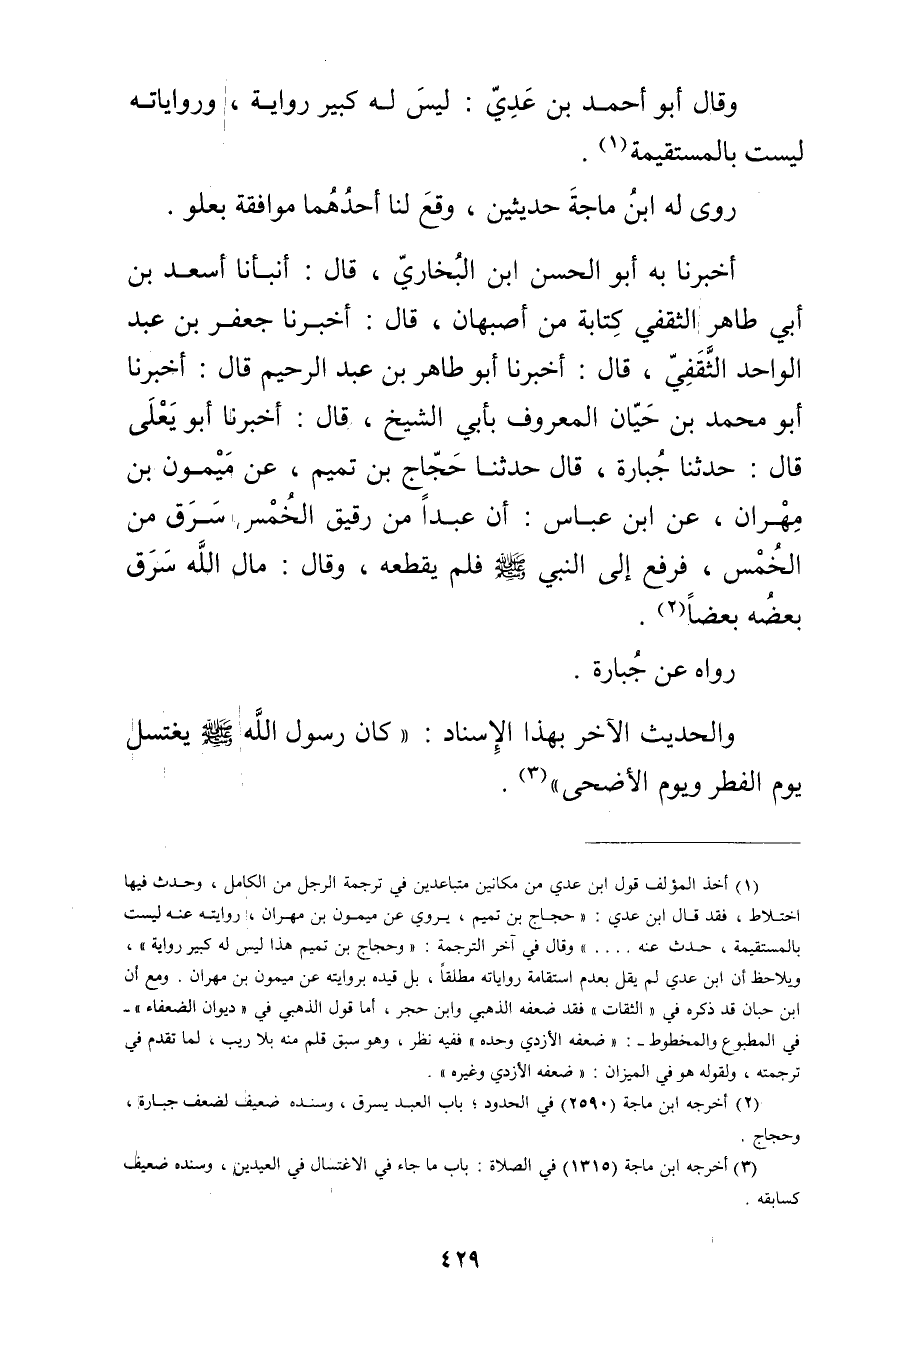 وقال أبو أحمد بن عَدِيّ : ليسَ له كبير رواية ، ورواياته
ليست بالمستقيمة(١) .
روى له ابنُ ماجةَ حديثين ، وقعَ لنا أحدُهُما موافقة بعلو .
أخبرنا به أبو الحسن ابن البُخاريّ ، قال : أنبأنا أسعد بن
أبي طاهر الثقفي كِتابة من أصبهان ، قال : أخبرنا جعفر بن عبد
الواحد الثَّقَفِيّ ، قال : أخبرنا أبو طاهر بن عبد الرحيم قال : أخبرنا
أبو محمد بن حَيّان المعروف بأبي الشيخ ، قال : أخبرنا أبو يَعْلَى
قال : حدثنا جُبارة ، قال حدثنا حَجّاج بن تميم ، عن مَيْمون بن
مِهْران ، عن ابن عباس : أن عبداً من رقيق الخُمْس سَرَق من
الخُمْس ، فرفع إلى النبي ﷺ فلم يقطعه ، وقال : مال اللَّه سَرَق
بعضُه بعضاً(٢) .
رواه عن جُبارة .
والحديث الآخر بهذا الإِسناد : « كان رسول اللَّه ﷺ يغتسل
يوم الفطر ويوم الأضحى»(٣) .
(١) أخذ المؤلف قول ابن عدي من مكانين متباعدين في ترجمة الرجل من الكامل ، وحدث فيها
اختلاط ، فقد قال ابن عدي : « حجاج بن تميم ، يروي عن ميمون بن مهران ، روايته عنه ليست
بالمستقيمة ، حدث عنه .... » وقال في آخر الترجمة : « وحجاج بن تميم هذا ليس له كبير رواية » ،
ويلاحظ أن ابن عدي لم يقل بعدم استقامة رواياته مطلقاً ، بل قيده بروايته عن ميمون بن مهران . ومع أن
ابن حبان قد ذكره في « الثقات » فقد ضعفه الذهبي وابن حجر ، أما قول الذهبي في « ديوان الضعفاء » ـ
في المطبوع والمخطوط ـ : « ضعفه الأزدي وحده » ففيه نظر ، وهو سبق قلم منه بلا ريب ، لما تقدم في
ترجمته ، ولقوله هو في الميزان : « ضعفه الأزدي وغيره » .
(٢) أخرجه ابن ماجة (٢٥٩٠) في الحدود ؛ باب العبد يسرق ، وسنده ضعيف لضعف جبارة ،
وحجاج .
(٣) أخرجه ابن ماجة (١٣١٥) في الصلاة : باب ما جاء في الاغتسال في العيدين ، وسنده ضعيف
كسابقه .
٤٢٩